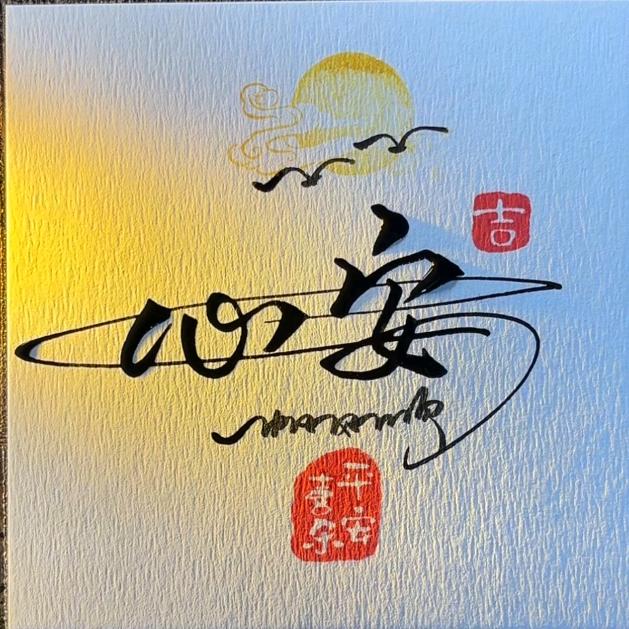 吉
心安
平安
喜乐